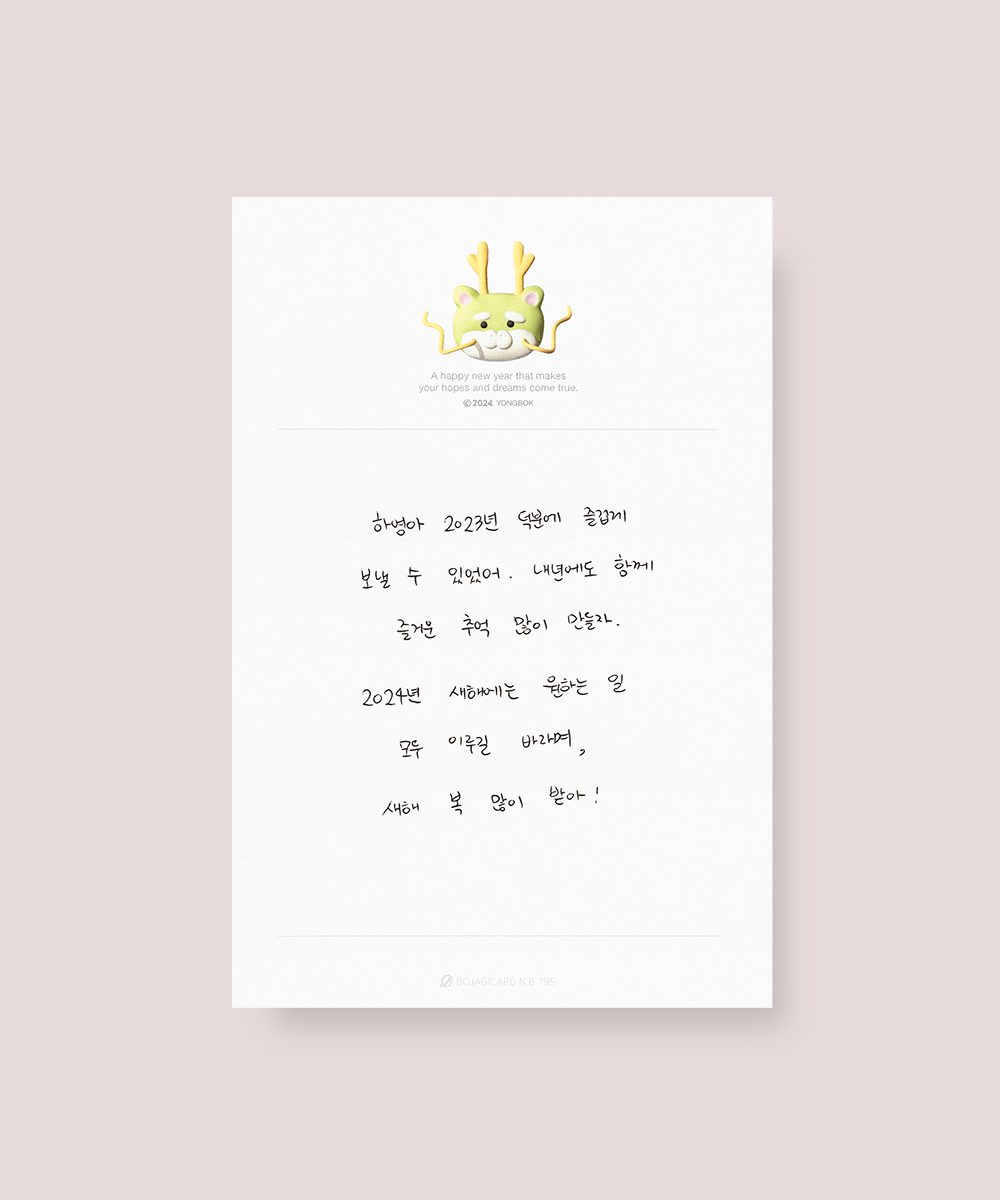 A happy new year that makes
your hopes and dreams come true.
©2024. YONGBOK
하영아 2023년 덕분에 즐겁게
보낼 수 있었어. 내년에도 함께
즐거운 추억 많이 만들자.
2024년 새해에는 원하는 일
모두 이루길 바라며,
새해 복 많이 받아!
BOJAGICARD N.B 795